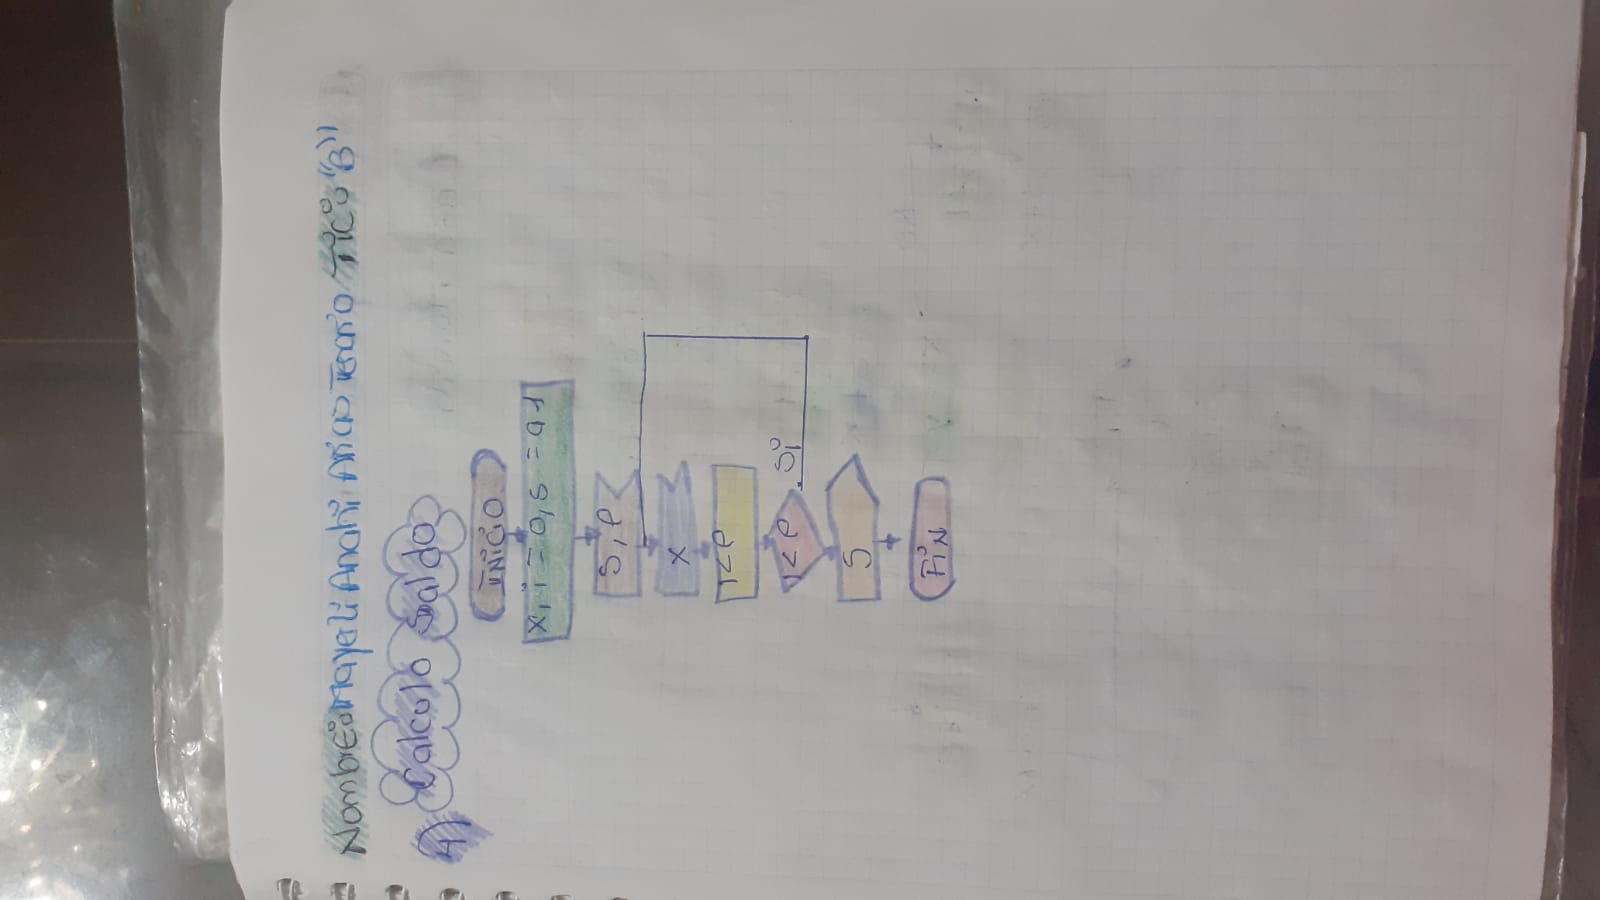 Nombre: mayeli Anahi Arias Tenorio / TiCs "B"
A) Calculo Saldo
INICIO
x, i = 0, s = 0.1
S, P
x
I<P
I<P
Si
S
FIN